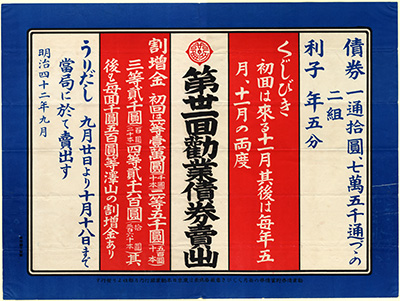 債券 一通拾圓、七萬五千通づゝの
二組
利子 年五分
くじびき
初回は來る十一月其後は毎年五
月、十一月の両度
第廿一回勸業債券賣出
割増金 初回は一等壹萬圓 二等五千圓
三等貳千圓 四等貳千六百圓 其
後も毎回千圓五百圓等澤山の割増金あり
うりだし 九月廿日より十月十八日まで
當局に於て賣出す
明治四十二年九月